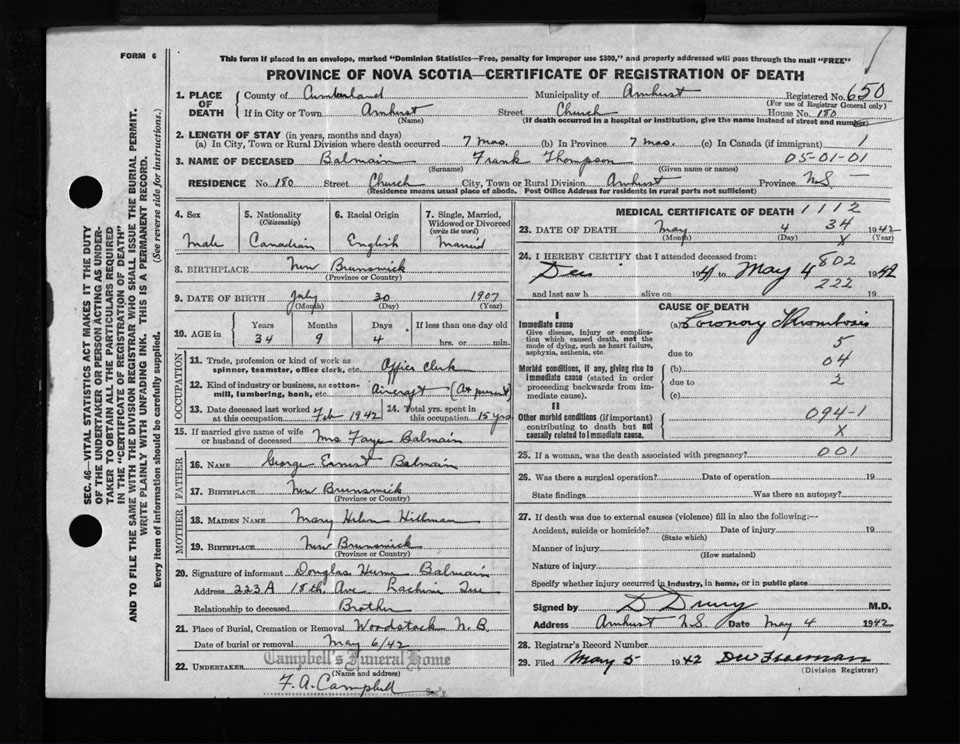 FORM 6
This form if placed in an envelope, marked "Dominion Statistics—Free, penalty for improper use $300," and properly addressed will pass through the mail "FREE"
PROVINCE OF NOVA SCOTIA—CERTIFICATE OF REGISTRATION OF DEATH
1. PLACE OF DEATH County of Cumberland Municipality of Amherst Registered No. 650
(For use of Registrar General only)
If in City or Town Amherst Street Church House No. 180
(Name) (If death occurred in a hospital or institution, give the name instead of street and number)
2. LENGTH OF STAY (in years, months and days)
(a) In City, Town or Rural Division where death occurred 7 mos. (b) In Province 7 mos. (c) In Canada (if immigrant) 1
3. NAME OF DECEASED Balmain Frank Thompson 05-01-01
(Surname) (Given name or names)
RESIDENCE No. 180 Street Church City, Town or Rural Division Amherst Province N.S.
(Residence means usual place of abode. Post Office Address for residents in rural parts not sufficient)
4. Sex 5. Nationality 6. Racial Origin 7. Single, Married, Widowed or Divorced
(Citizenship) (write the word)
Male Canadian English Married
8. BIRTHPLACE New Brunswick
(Province or Country)
9. DATE OF BIRTH July 30 1907
(Month) (Day) (Year)
10. AGE in Years Months Days If less than one day old
34 9 4 hrs. or min.
OCCUPATION
11. Trade, profession or kind of work as spinner, teamster, office clerk, etc. Office Clerk
12. Kind of industry or business, as cotton-mill, lumbering, bank, etc. Aircraft (At present)
13. Date deceased last worked at this occupation Feb 1942 14. Total yrs. spent in this occupation 15 yrs
15. If married give name of wife or husband of deceased Mrs Faye Balmain
FATHER
16. NAME George Ernest Balmain
17. BIRTHPLACE New Brunswick
(Province or Country)
MOTHER
18. MAIDEN NAME Mary Helen Hillman
19. BIRTHPLACE New Brunswick
(Province or Country)
20. Signature of informant Douglas Hume Balmain
Address 223A 18th Ave Lachine Que
Relationship to deceased Brother
21. Place of Burial, Cremation or Removal Woodstock N.B.
Date of burial or removal May 6/42
22. UNDERTAKER Campbell's Funeral Home
(Name and address)
F. A. Campbell
MEDICAL CERTIFICATE OF DEATH 1112
34
23. DATE OF DEATH May 4 1942
(Month) (Day) X (Year)
24. I HEREBY CERTIFY that I attended deceased from: 802
Dec 1941 to May 4 1942
222
and last saw h alive on 19
CAUSE OF DEATH
I
Immediate cause (a) Coronary Thrombosis
Give disease, injury or complication which caused death, not the mode of dying, such as heart failure, asphyxia, asthenia, etc.
5
due to
04
Morbid conditions, if any, giving rise to immediate cause (stated in order proceeding backwards from immediate cause).
(b)
due to 2
(c)
II
094-1
Other morbid conditions (if important) contributing to death but not causally related to immediate cause.
X
25. If a woman, was the death associated with pregnancy? 001
26. Was there a surgical operation? Date of operation 19
State findings Was there an autopsy?
27. If death was due to external causes (violence) fill in also the following:—
Accident, suicide or homicide? Date of injury 19
(State which)
Manner of injury
(How sustained)
Nature of injury
Specify whether injury occurred in industry, in home, or in public place
Signed by D Drury M.D.
Address Amherst N.S. Date May 4 1942
28. Registrar's Record Number
29. Filed May 5 1942
(Division Registrar)
SEC. 46—VITAL STATISTICS ACT MAKES IT THE DUTY
OF THE UNDERTAKER OR PERSON ACTING AS UNDER-
TAKER TO OBTAIN ALL THE PARTICULARS REQUIRED
IN THE "CERTIFICATE OF REGISTRATION OF DEATH"
AND TO FILE THE SAME WITH THE DIVISION REGISTRAR WHO SHALL ISSUE THE BURIAL PERMIT.
WRITE PLAINLY WITH UNFADING INK. THIS IS A PERMANENT RECORD.
Every item of information should be carefully supplied. (See reverse side for instructions.)